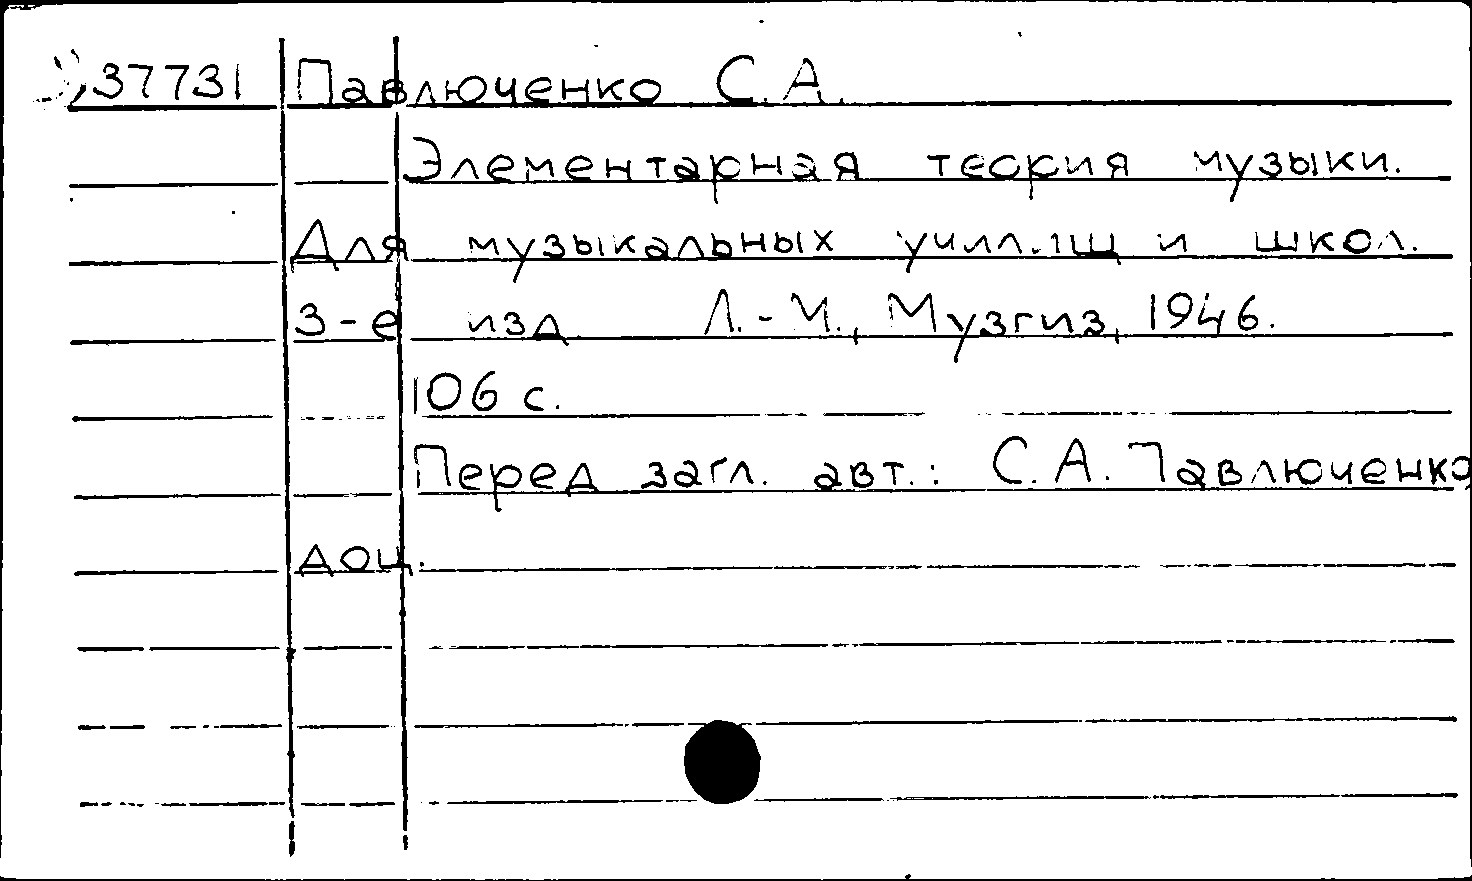 37731 Павлюченко С.А.
Элементарная теория музыки.
Для музыкальных училищ и школ.
3-е изд Л.-М., Музгиз, 1946.
106 с.
Перед загл. авт.: С.А. Павлюченко,
доц.